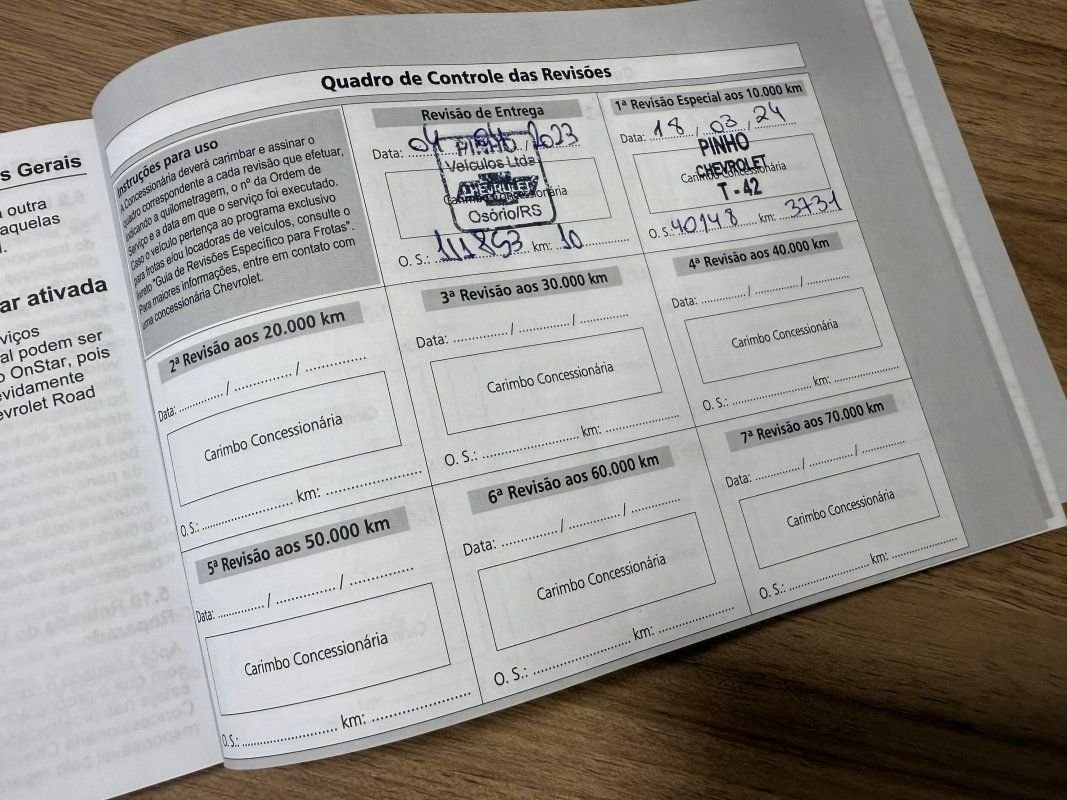 s Gerais
outra
aquelas
ar ativada
viços
al podem ser
o OnStar, pois
evidamente
evrolet Road
Quadro de Controle das Revisões
Instruções para uso
A Concessionária deverá carimbar e assinar o
quadro correspondente a cada revisão que efetuar,
indicando a quilometragem, o nº da Ordem de
Serviço e a data em que o serviço foi executado.
Caso o veículo pertença ao programa exclusivo
para frotas e/ou locadoras de veículos, consulte o
livreto "Guia de Revisões Específico para Frotas".
Para maiores informações, entre em contato com
uma concessionária Chevrolet.
Revisão de Entrega
Data: / / 2023
PINHO
Veículos Ltda
CHEVROLET
Osório/RS
O. S.: 111853 km: 10
1ª Revisão Especial aos 10.000 km
Data: 18 / 03 / 24
PINHO
CHEVROLET
Carimbo Concessionária
T-42
O. S.: 40148 km: 3731
2ª Revisão aos 20.000 km
Data: ............. / ............. / .............
Carimbo Concessionária
O. S.: ............. km: .............
3ª Revisão aos 30.000 km
Data: ............. / ............. / .............
Carimbo Concessionária
O. S.: ............. km: .............
4ª Revisão aos 40.000 km
Data: ............. / ............. / .............
Carimbo Concessionária
O. S.: ............. km: .............
5ª Revisão aos 50.000 km
Data: ............. / ............. / .............
Carimbo Concessionária
O. S.: ............. km: .............
6ª Revisão aos 60.000 km
Data: ............. / ............. / .............
Carimbo Concessionária
O. S.: ............. km: .............
7ª Revisão aos 70.000 km
Data: ............. / ............. / .............
Carimbo Concessionária
O. S.: ............. km: .............